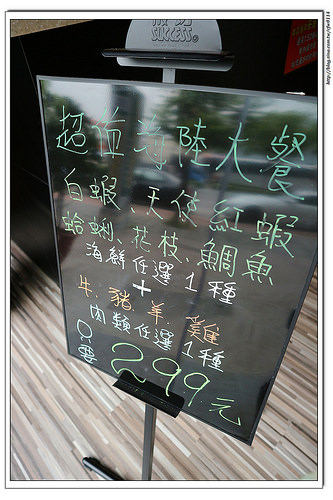 SUCCESS
超值海陸大餐
白蝦、天使紅蝦
蛤蜊、花枝、鯛魚
海鮮任選1種
+
牛.豬.羊.雞
肉類任選1種
只要299元
http://blog.sina.com.tw/rylw0114